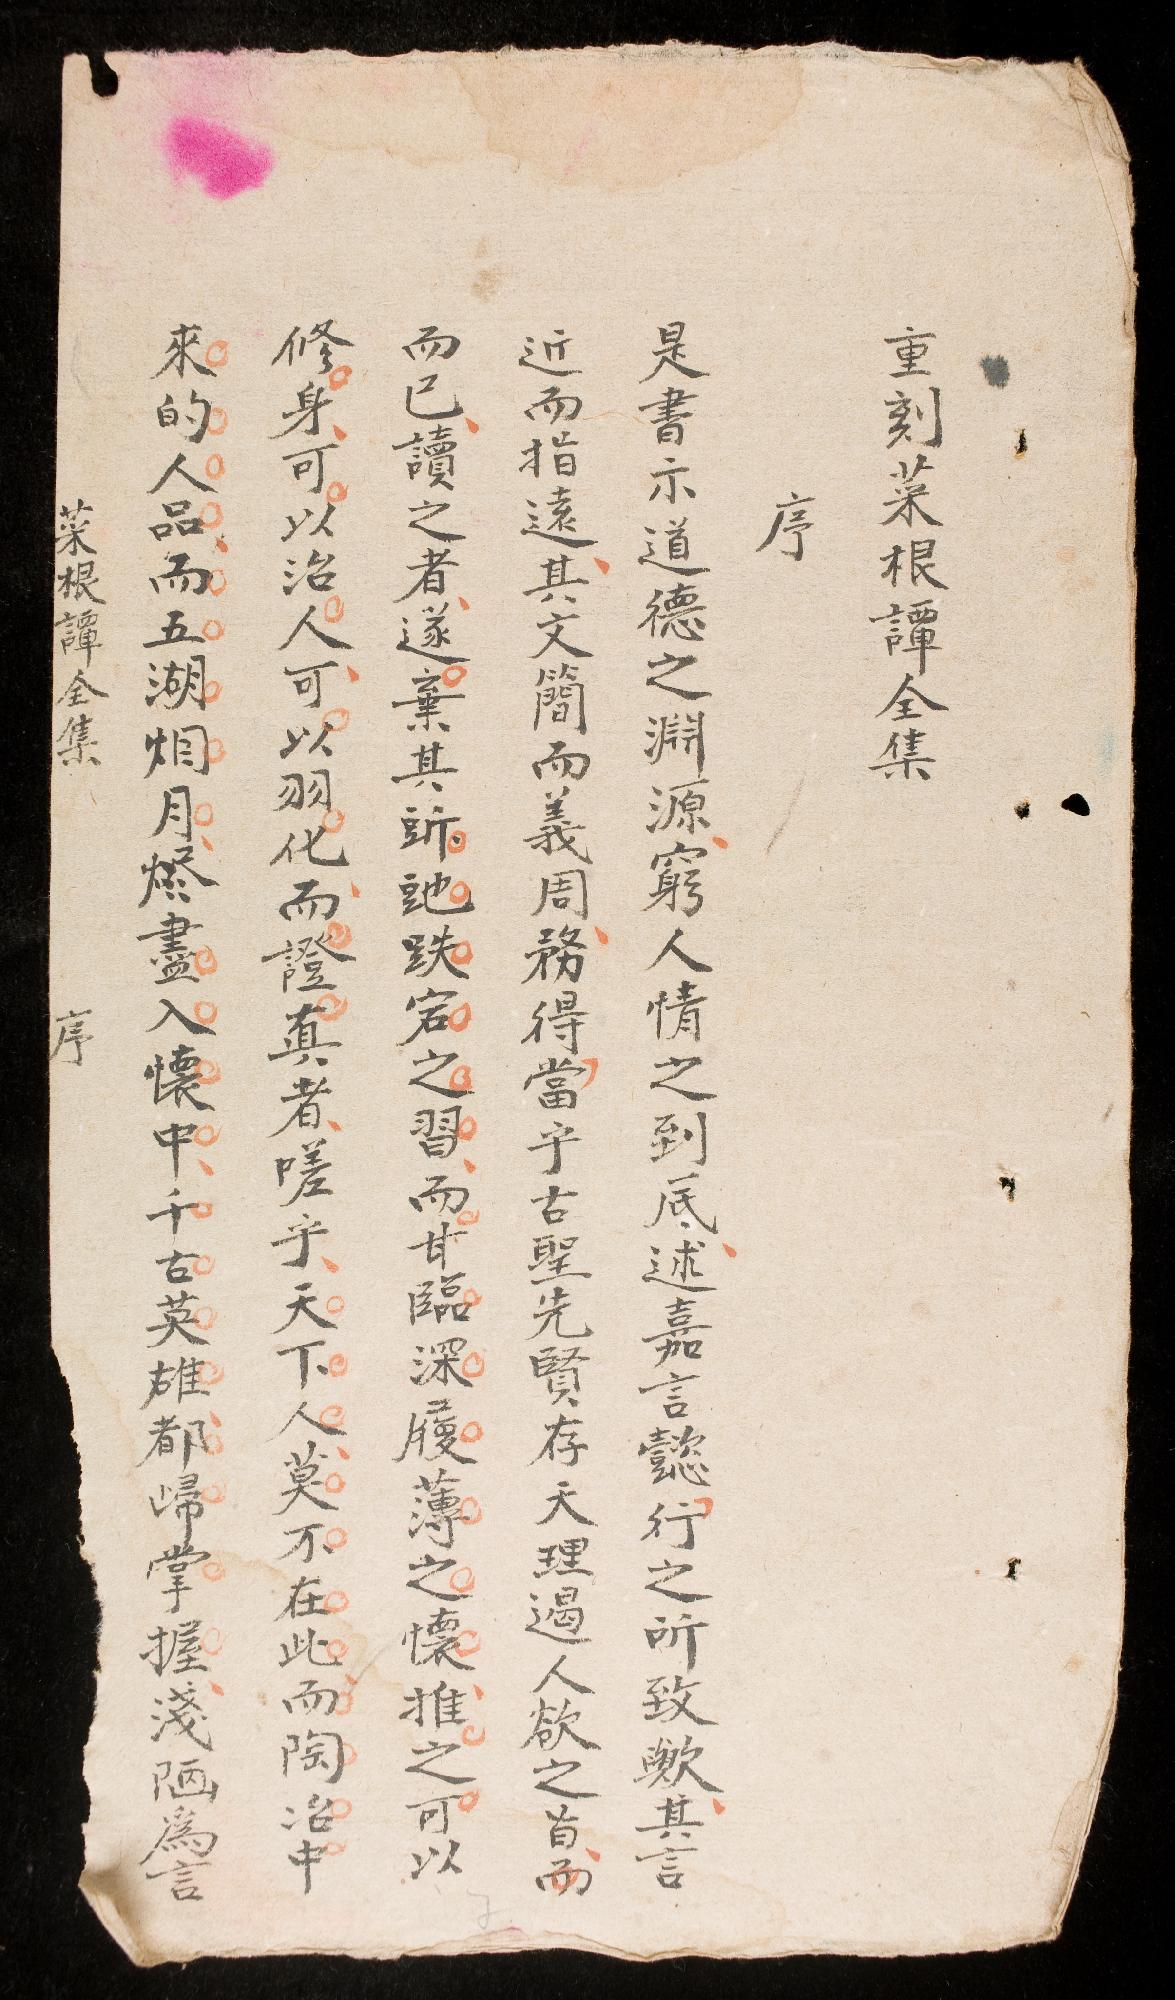 重刻菜根譚全集
序
是書示道德之淵源窮人情之到底述嘉言懿行之所致歟其言
近而指遠其文簡而義周務得當乎古聖先賢存天理遏人欲之旨而
而已讀之者遂棄其訢訑跌宕之習而甘臨深履薄之懷推之可以
修身可以治人可以羽化而證真者嗟乎天下人莫不在此而陶冶中
來的人品而五湖烟月燦盡入懷中千古英雄都歸掌握淺陋爲言
菜根譚全集 序